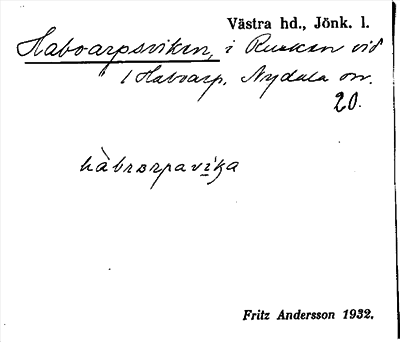 Västra hd., Jönk. l.
Haboarpsviken, i Rusken vid
" / Haboarp, Nydala sn.
20.
hàbrarpavika
Fritz Andersson 1932.